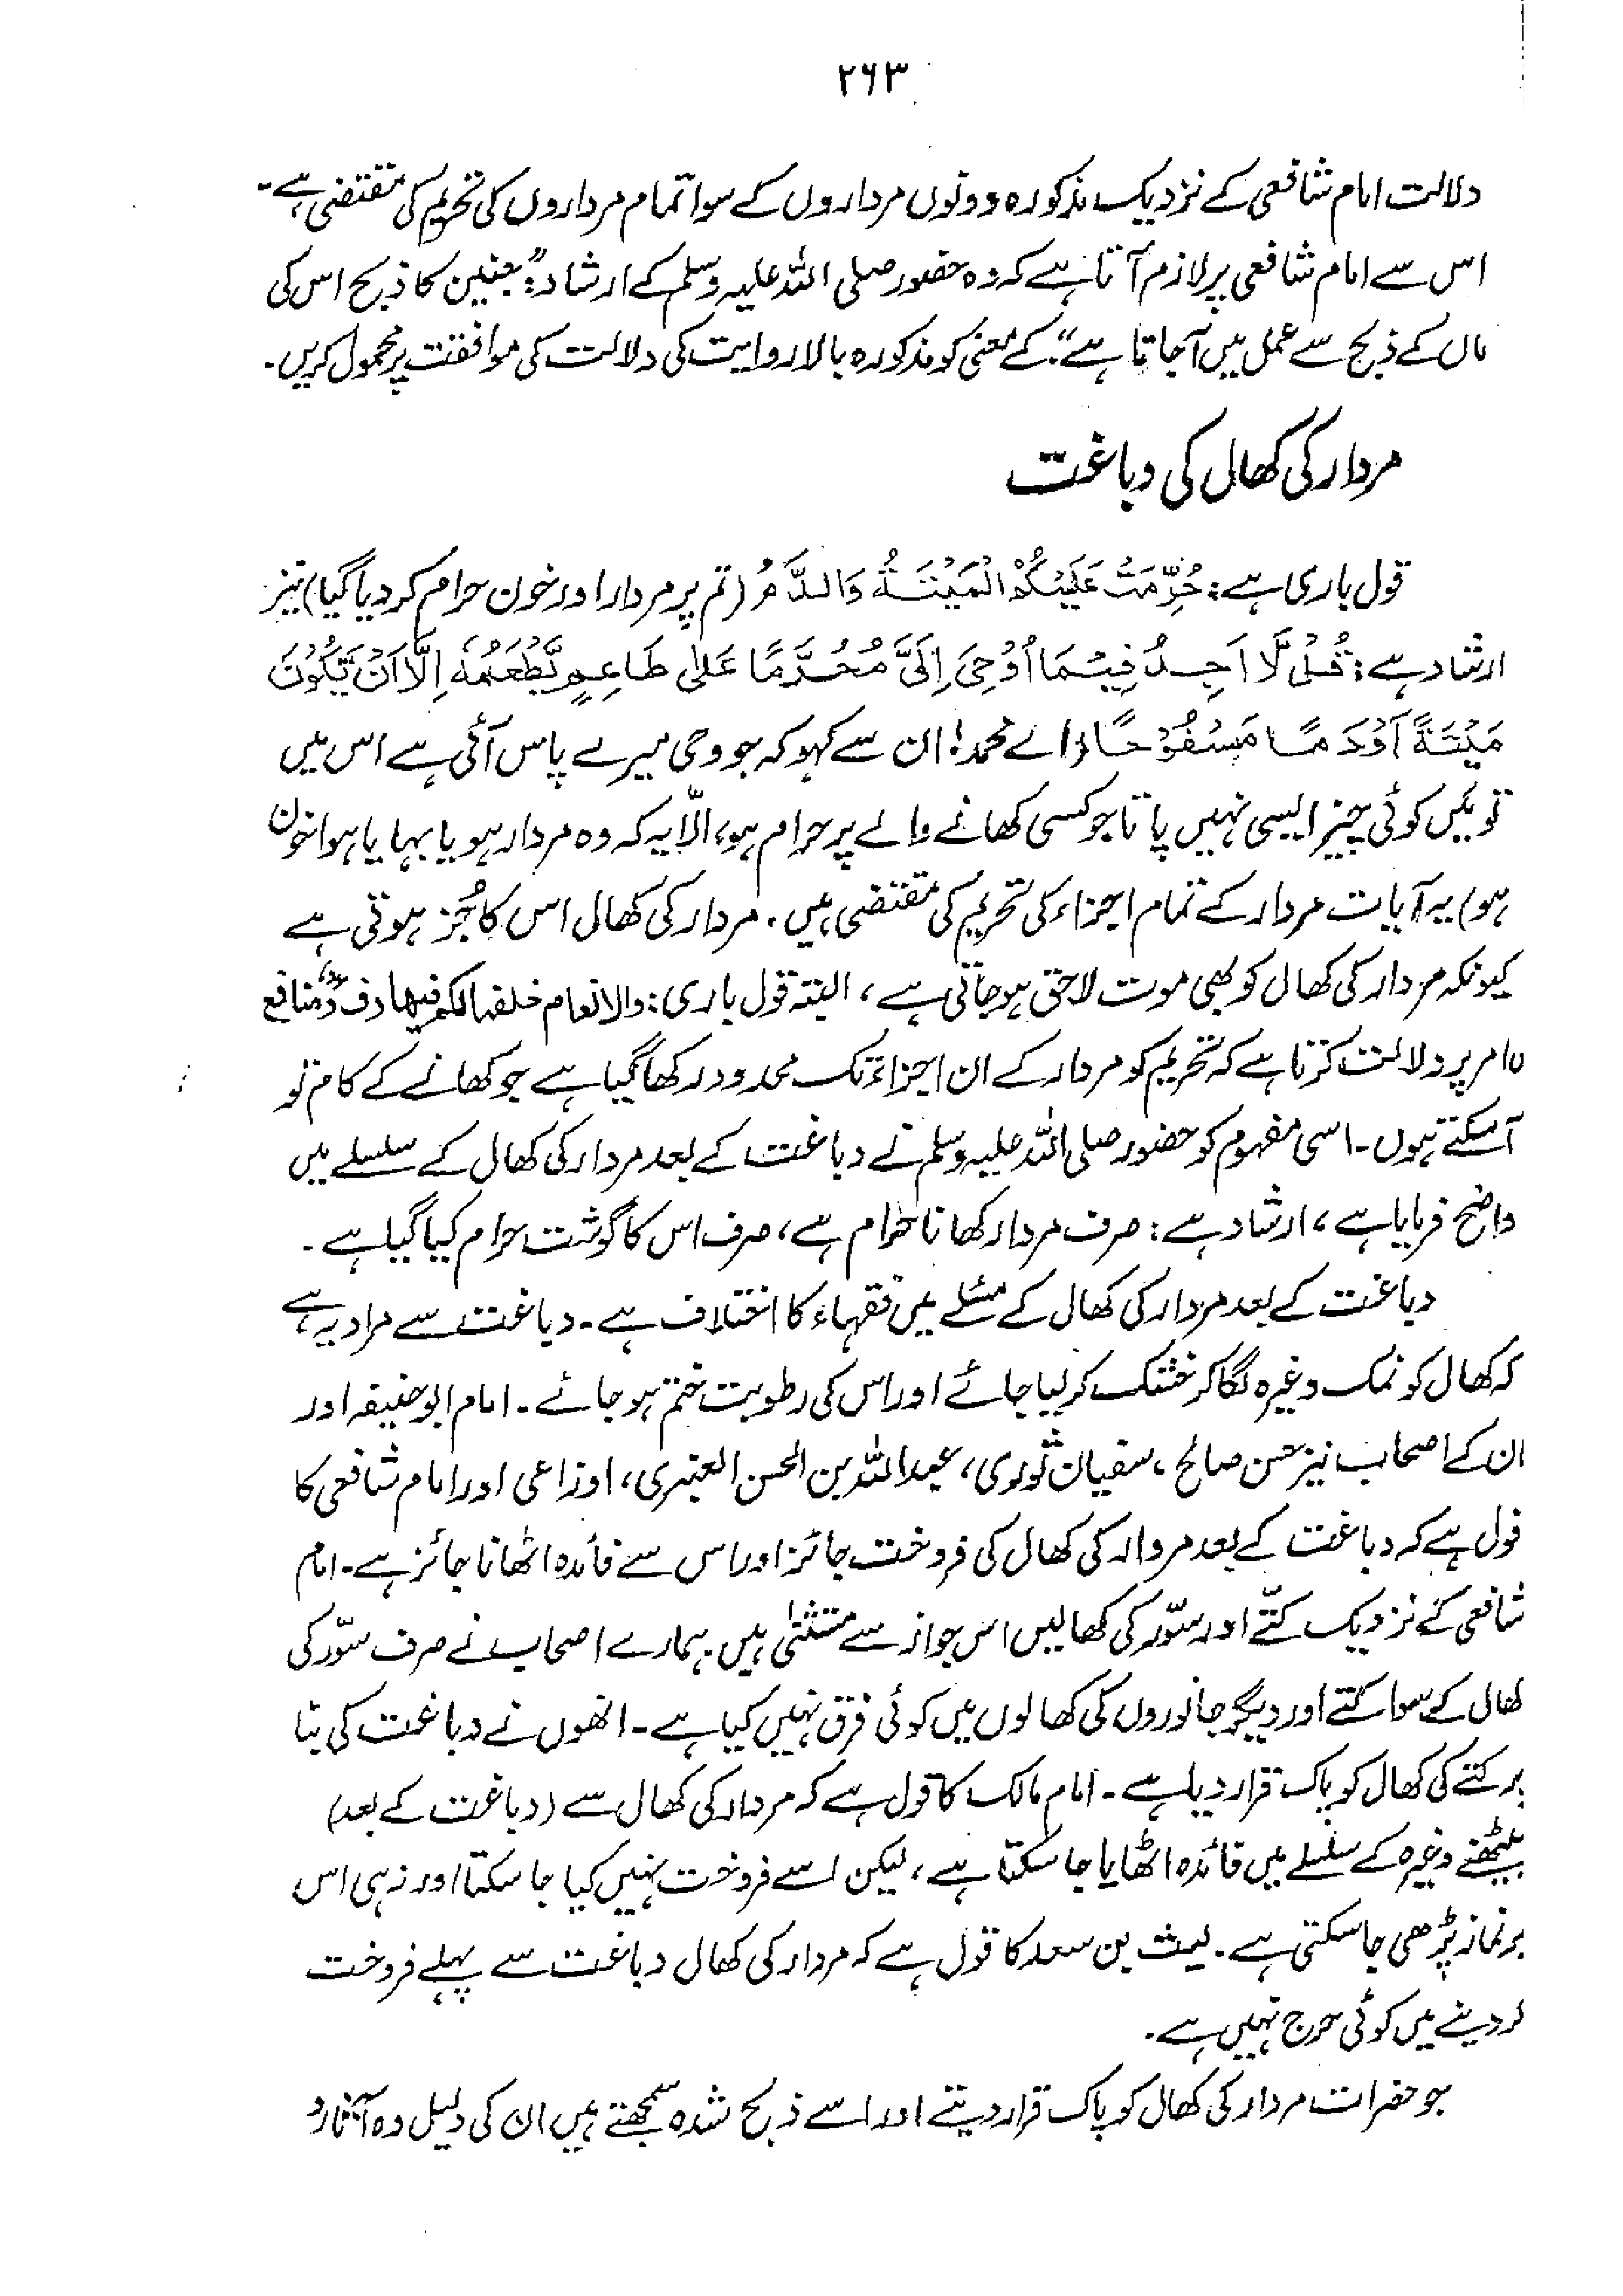 ۲۶۳
دلالت امام شافعی کے نزدیک مذکورہ دونوں مرداروں کے سوا تمام مرداروں کی تحریم کی مقتضی ہے۔
اس سے امام شافعی پر لازم آتا ہے کہ وہ حضور صلی اللہ علیہ وسلم کے ارشاد: "جنین کا ذبح اس کی
ماں کے ذبح سے عمل میں آجاتا ہے" کے معنی کو مذکورہ بالا روایت کی دلالت کی موافقت پر محمول کریں۔
مردار کی کھال کی دباغت
قول باری ہے: حُرِّمَتْ عَلَيْكُمُ الْمَيْتَةُ وَالدَّمُ (تم پر مردار اور خون حرام کر دیا گیا) نیز
ارشاد ہے: قُلْ لَّا اَجِدُ فِيْمَا اُوْحِيَ اِلَيَّ مُحَرَّمًا عَلٰى طَاعِمٍ يَّطْعَمُهٗ اِلَّا اَنْ يَّكُوْنَ
مَيْتَةً اَوْ دَمًا مَسْفُوْحًا (اے محمد! ان سے کہو کہ جو وحی میرے پاس آئی ہے اس میں
تو میں کوئی چیز ایسی نہیں پاتا جو کسی کھانے والے پر حرام ہو، الّا یہ کہ وہ مردار ہو یا بہایا ہوا خون
ہو) یہ آیات مردار کے تمام اجزاء کی تحریم کی مقتضی ہیں۔ مردار کی کھال اس کا جُز ہوتی ہے
کیونکہ مردار کی کھال کو بھی موت لاحق ہو جاتی ہے، البتہ قول باری: والانعام خلقہا لکم فیہا دفءٌ ومنافع
امر پر دلالت کرتا ہے کہ تحریم کو مردار کے ان اجزاء تک محدود رکھا گیا ہے جو کھانے کے کام تو
آسکتے ہوں۔ اسی مفہوم کو حضور صلی اللہ علیہ وسلم نے دباغت کے بعد مردار کی کھال کے سلسلے میں
واضح فرمایا ہے، ارشاد ہے: صرف مردار کھانا حرام ہے، صرف اس کا گوشت حرام کیا گیا ہے۔
دباغت کے بعد مردار کی کھال کے مسئلے میں فقہاء کا اختلاف ہے۔ دباغت سے مراد یہ ہے
کہ کھال کو نمک وغیرہ لگا کر خشک کر لیا جائے اور اس کی رطوبت ختم ہو جائے۔ امام ابوحنیفہ اور
ان کے اصحاب نیز حسن صالح، سفیان ثوری، عبداللہ بن الحسن العنبری، اوزاعی اور امام شافعی کا
قول ہے کہ دباغت کے بعد مردار کی کھال کی فروخت جائز اور اس سے فائدہ اٹھانا جائز ہے۔ امام
شافعی کے نزدیک کتّے اور سوّر کی کھالیں اس جواز سے مستثنیٰ ہیں۔ ہمارے اصحاب نے صرف سوّر کی
کھال کے سوا کتے اور دیگر جانوروں کی کھالوں میں کوئی فرق نہیں کیا ہے۔ انھوں نے دباغت کی بنا
پر کتے کی کھال کو پاک قرار دیا ہے۔ امام مالک کا قول ہے کہ مردار کی کھال سے (دباغت کے بعد)
بیٹھنے وغیرہ کے سلسلے میں فائدہ اٹھایا جا سکتا ہے، لیکن اسے فروخت نہیں کیا جا سکتا اور نہ ہی اس
پر نماز پڑھی جا سکتی ہے۔ لیث بن سعد کا قول ہے کہ مردار کی کھال دباغت سے پہلے فروخت
کر دینے میں کوئی حرج نہیں ہے۔
جو حضرات مردار کی کھال کو پاک قرار دیتے اور اسے ذبح شدہ سمجھتے ہیں ان کی دلیل وہ آثار و